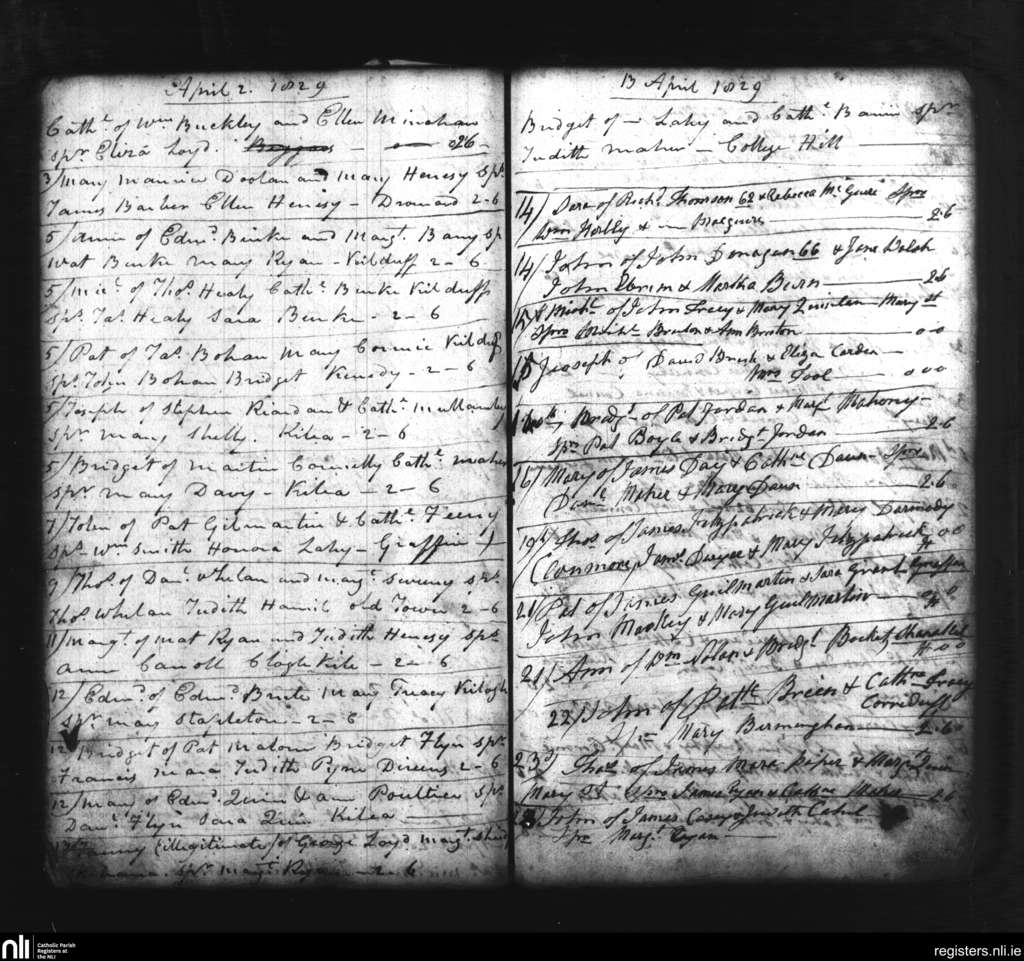 April 2. 1829
Cathe. of Wm. Buckley and Ellen Minehan
spr. Eliza Loyd. 2 6
3/ Mary Maurice Doolan and Mary Henesy sprs.
James Barber Ellen Henesy - Dromard 2-6
5/ of Edmd. Burke and Margt. Barry sp
Wat Burke Mary Ryan - Kilduff 2-6
5/ Mic. of Thos. Healy Cathe. Burke Kilduff
sps. Jas. Healy Sara Burke - 2-6
5/ Pat of Jas. Bohan Mary Kilduff
sps. John Bohan Bridget Kenedy - 2-6
5/ Joseph of Stephen Riardan & Cathe.
spr. Mary Shelly. Kilea - 2-6
5/ Bridget of Martin Connelly Cathe. Maher
spr. Mary Davy - Kilea - 2-6
7/ John of Pat Gilmartin & Cathe. Feeny
sps. Wm Smith Honora Lahy - Graffin
9/ Thos. of Danl. Whelan and Margt. Sweeny sps.
Thos. Whelan Judith Hamil old Town 2-6
11/ Margt. of Mat Ryan and Judith Henesy sps.
Ann Carroll 2-6
12/ Edmd. of Edmd. Mary Treacy
spr. Mary Stapleton - 2-6
12 Bridget of Pat Bridget Flyn spr.
Francis Mara Judith Pyne 2-6
12/ Mary of Edmd. Quin & Ann Poultier sps.
Danl. Flyn Sara Quin Kilea
Fanny (illegitimate) of George Loyd Margt.
spr. Margt. Ryan - 2-6
13 April 1829
Bridget of - Lahy and Cathe. spr
Judith Maher - College Hill
14/ Sara of Richd. Thomson 62 & Rebecca McGuire Sprs
Wm & - Macguire 2-6
14/ John of John Donagan 66 & Jane Walsh
John & Martha Burn. 26
of John Tracy & Mary Quinlan - Mary st
Spro & Ann 0-0
15 Joseph of David & Eliza Carden
Mrs Tool 0 0 0
Bridgt. of Pat Jordan & Margt. Mahony
Sprs Pat Boyle & Bridgt. Jordan 2-6
16/ Mary of James Day & Cathne Daun Sprs
Danl. Maher & Mary Daun 2-6
19th/ Thos. of James Fitzpatrick & Mary Darmody
Jams. Dwyer & Mary Fitzpatrick
21/ Pat of James Guilmartin & Sara Grant
John Mackey & Mary Guilmartin
21/ Ann of Wm Nolan & Bridgt.
22/ John of Patk. Breen & Cathne Tracy
Mary Birmingham 2-6
23d/ Thos. of James Mara Piper & Margt.
Mary St. Spro James Ryan & Cathne Maher 2-6
John of James Casey & Judith
Spr Margt. Ryan
nli
Catholic Parish
Registers at
the NLI
registers.nli.ie